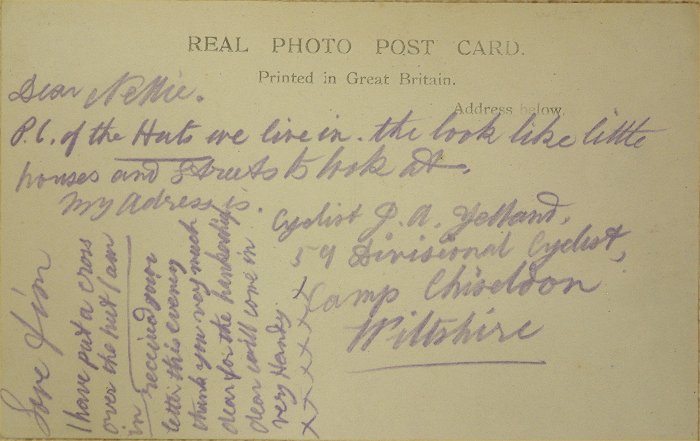 REAL PHOTO POST CARD.
Printed in Great Britain.
Address below.
Dear Nellie.
P.C. of the Huts we live in. the look like little
houses and streets to look at.
My adress is.
Cyclist J. A. Yelland,
59 Divisional Cyclist,
Camp Chiseldon
Wiltshire
I have put a cross
over the hut I am
in received your
letter this evening
thank you very much
dear for the hankerchief
dear will come in
very Handy
x x x x x x x
Love Jim